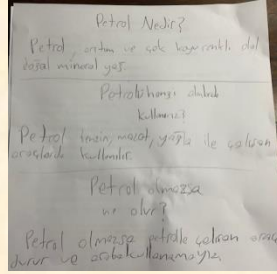 Petrol Nedir?
Petrol, ve çok
doğal mineral yağ.
Petrol hangi
kullanırız?
Petrol benzin, mazot, yağla ile çalışan
araçlarda kullanılır.
Petrol olmazsa
ne olur?
Petrol olmazsa petrolle çalışan araç
durur ve araba kullanamayız.